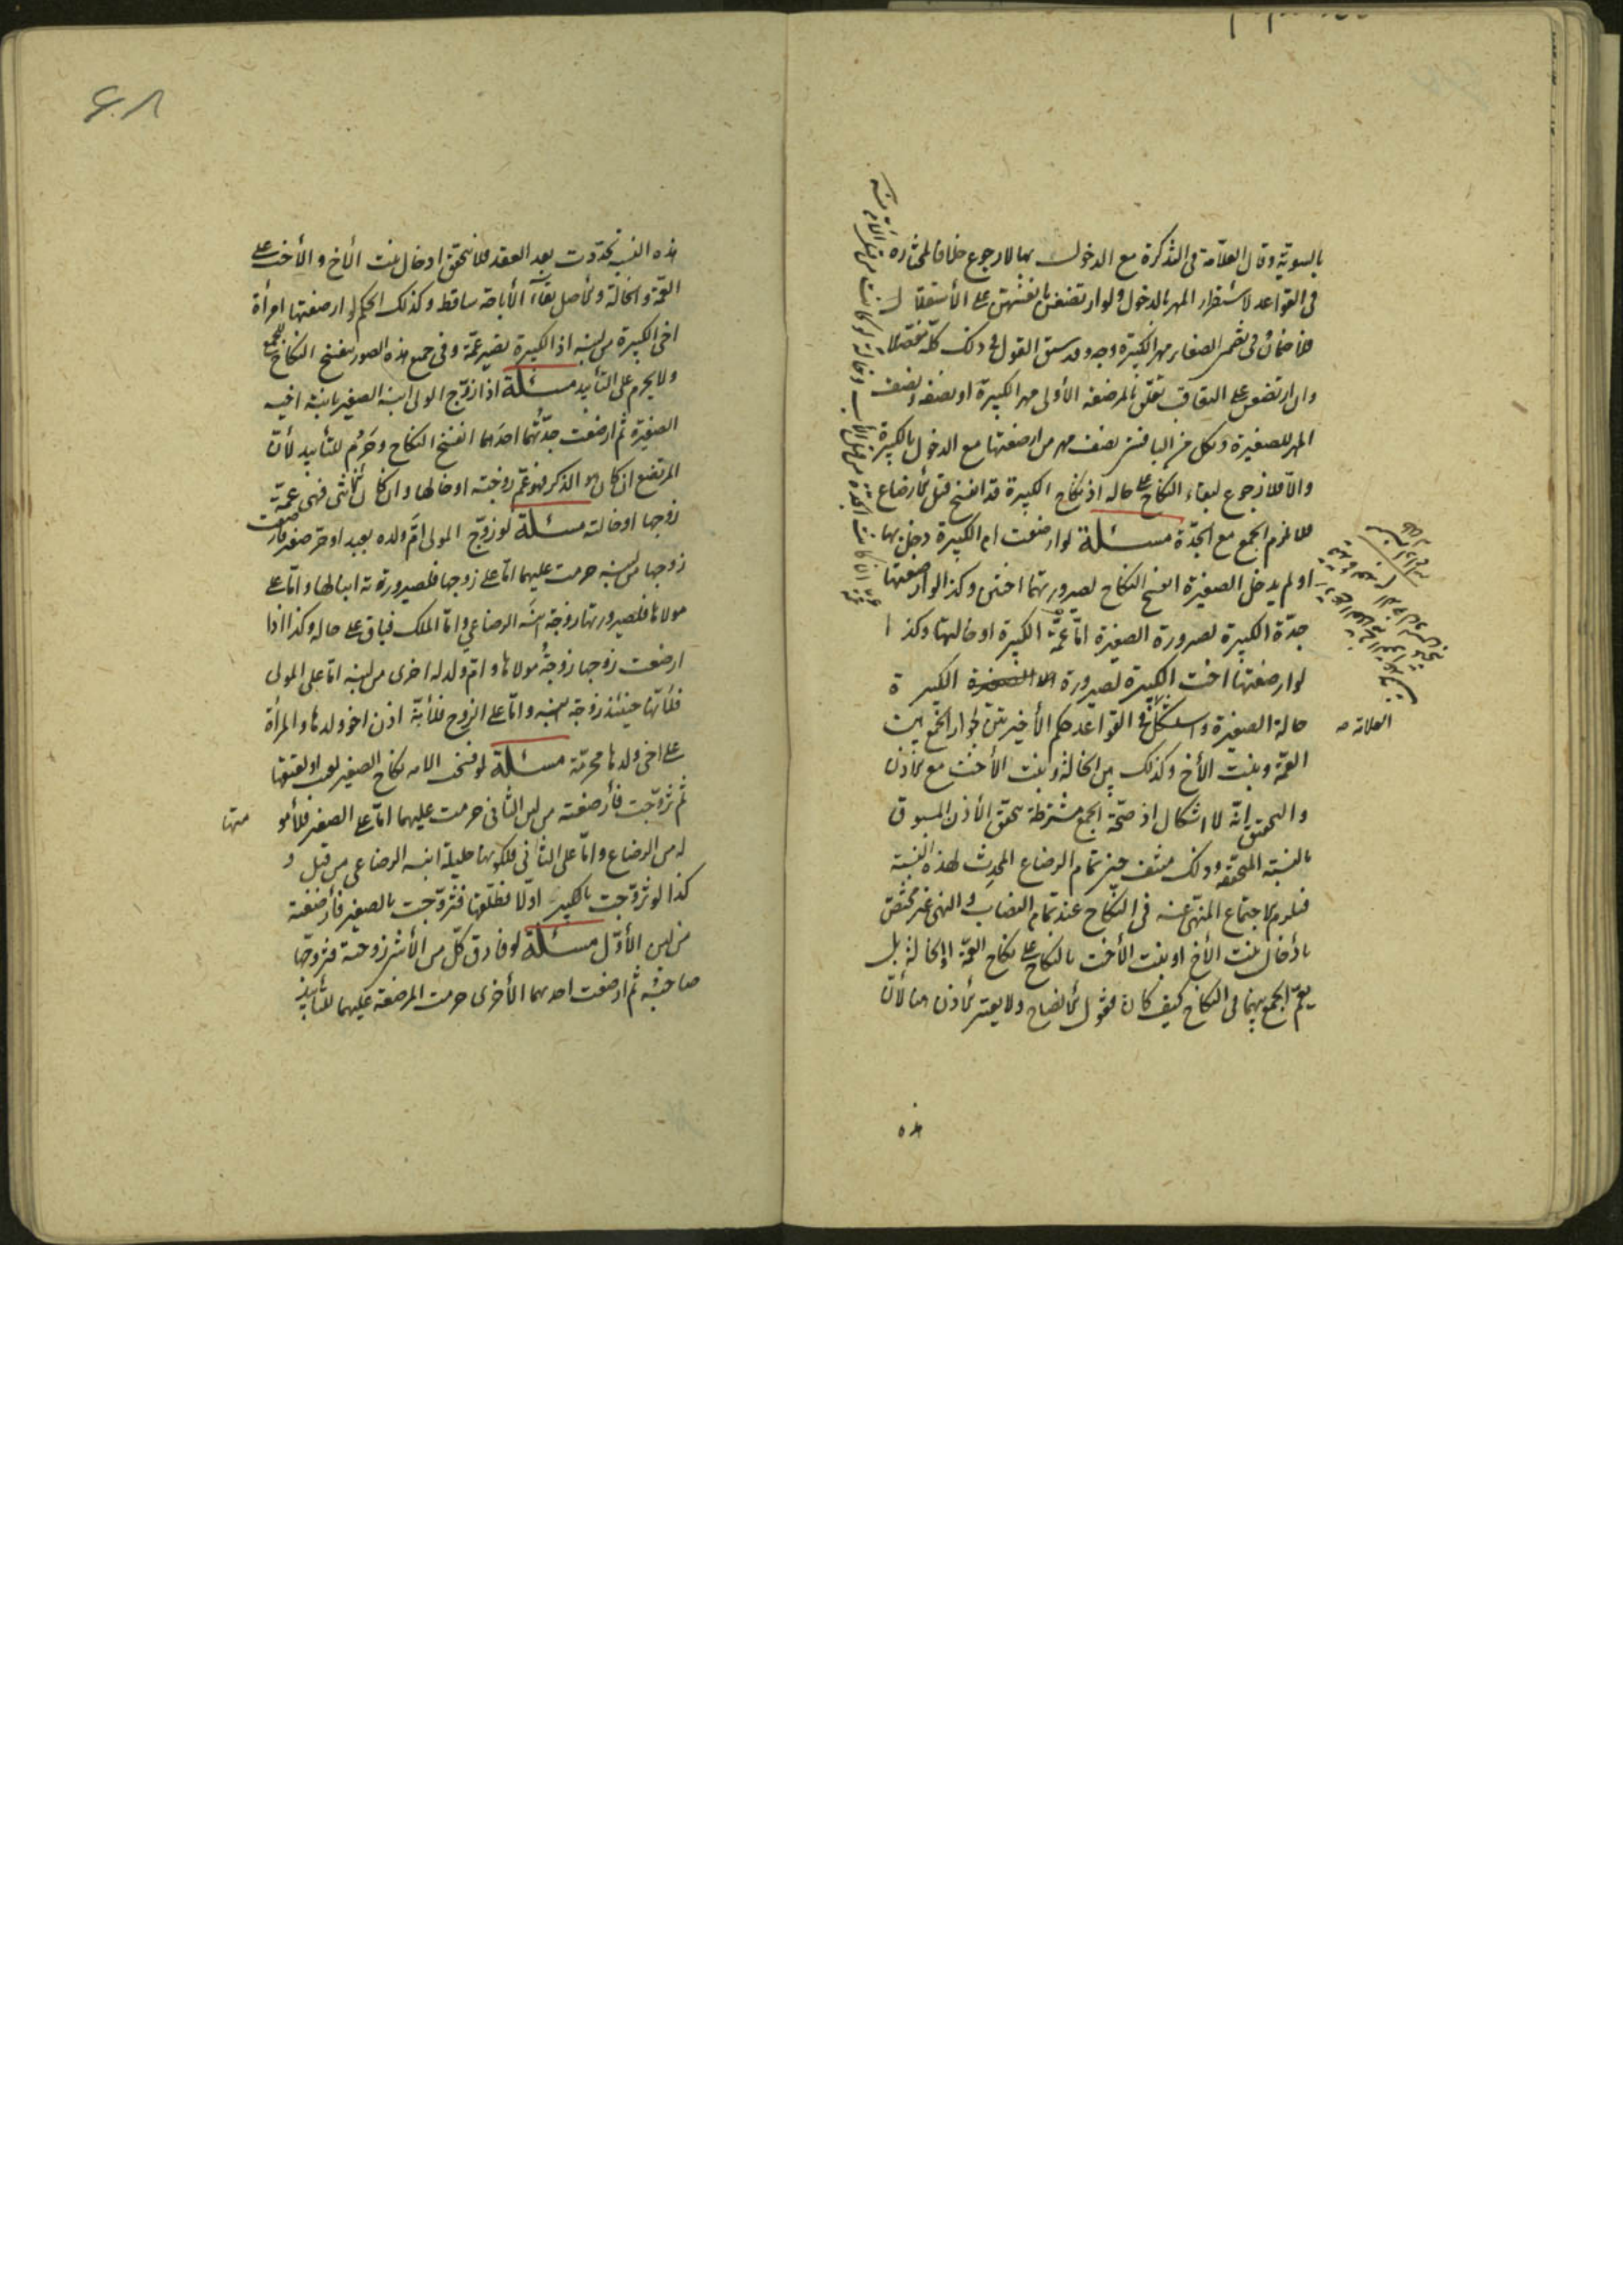 بالسوية وقال العلامة فى التذكرة مع الدخول بها لا رجوع خلافا لمختاره
فى القواعد لاستقرار المهر بالدخول ولو ارتضعن بانفسهن على الاستقلال
فلا ضمان وفى تضمن الصغاير مهر الكبيرة وجه وقد سبق القول فى ذلك كله مفصلا
وان ارتضعن على التعاقب تعلق بالمرضعة الأولى مهر الكبيرة او نصفه ونصف
المهر للصغيرة وبكل من الباقيتين نصف مهر من ارضعتها مع الدخول بالكبيرة
والا فلا رجوع لبقاء النكاح على حاله اذ نكاح الكبيرة قد انفسخ قبل الارضاع
فلا يلزم الجمع مع الجدة مسئلة لو ارضعت ام الكبيرة دخل بها
او لم يدخل الصغيرة انفسخ النكاح لصيرورتهما اختين وكذا لو ارضعتها
جدة الكبيرة لصيرورة الصغيرة اما عمة الكبيرة او خالتها وكذا
لو ارضعتها اخت الكبيرة لصيرورة الكبيرة
العلامه
خالة الصغيرة واستشكل فى القواعد حكم الأخيرتين لجواز الجمع بين
العمة وبنت الأخ وكذلك بين الخالة وبنت الأخت مع الأذن
والتحقيق انه لا اشكال اذ صحة الجمع مشترطة بتحقق الأذن المسبوق
بالنسبة المتحققة وذلك منتف حين تمام الرضاع المحدث لهذه النسبة
فيلزم الاجتماع المنهى عنه فى النكاح عند تمام النصاب والنهى غير مختص
بأدخال بنت الأخ او بنت الأخت بالنكاح على نكاح العمة او الخالة بل
يعم الجمع بينهما فى النكاح كيف كان ولا يعتبر الأذن هنا لأن
هذه
٤٨
هذه النسبة تجددت بعد العقد فلا يتحقق ادخال بنت الأخ والأخت على
العمة والخالة والأصل بقاء الأباحة ساقط وكذلك الحكم لو ارضعتها امرأة
اخى الكبيرة من لبنه اذ الكبيرة تصير عمة وفى جميع هذه الصور ينفسخ النكاح للجمع
ولا يحرم على التأبيد مسئلة اذا زوج الولى ابنه الصغير بابنة اخيه
الصغيرة ثم ارضعت جدتهما احدهما انفسخ النكاح وحرم للتأبيد لأن
المرتضع ان كان هو الذكر فهو عم زوجته او خالها وان كان الأنثى فهى عمة
زوجها او خالته مسئلة لو زوج المولى ام ولده بعبد او حر صغير فارضعت
زوجها من لبنه حرمت عليهما اما على زوجها فلصيرورته ابنا لها واما على
مولاها فلصيرورتها زوجة ابنه الرضاعي واما الملك فباق على حاله وكذا اذا
ارضعت زوجها زوجة مولاها وام ولد له اخرى من لبنه اما على المولى
فلأنها حينئذ زوجة ابنه واما على الزوج فلأنه اذن اخو ولدها والمرأة
على اخى ولدها محرمة مسئلة لو فسخت الامة نكاح الصغير لعيب او لعتقها
ثم تزوجت فأرضعته من لبن الثانى حرمت عليهما اما على الصغير فللأمومة
منها
له من الرضاع واما على الثانى فلكونها حليلة ابنه الرضاعى من قبل و
كذا لو تزوجت بالكبير اولا فطلقها فتزوجت بالصغير فأرضعته
من لبن الأول مسئلة لو فارق كل من الأثنين زوجته فتزوجها
صاحبه ثم ارضعت احديهما الأخرى حرمت المرضعة عليهما للتأبيد